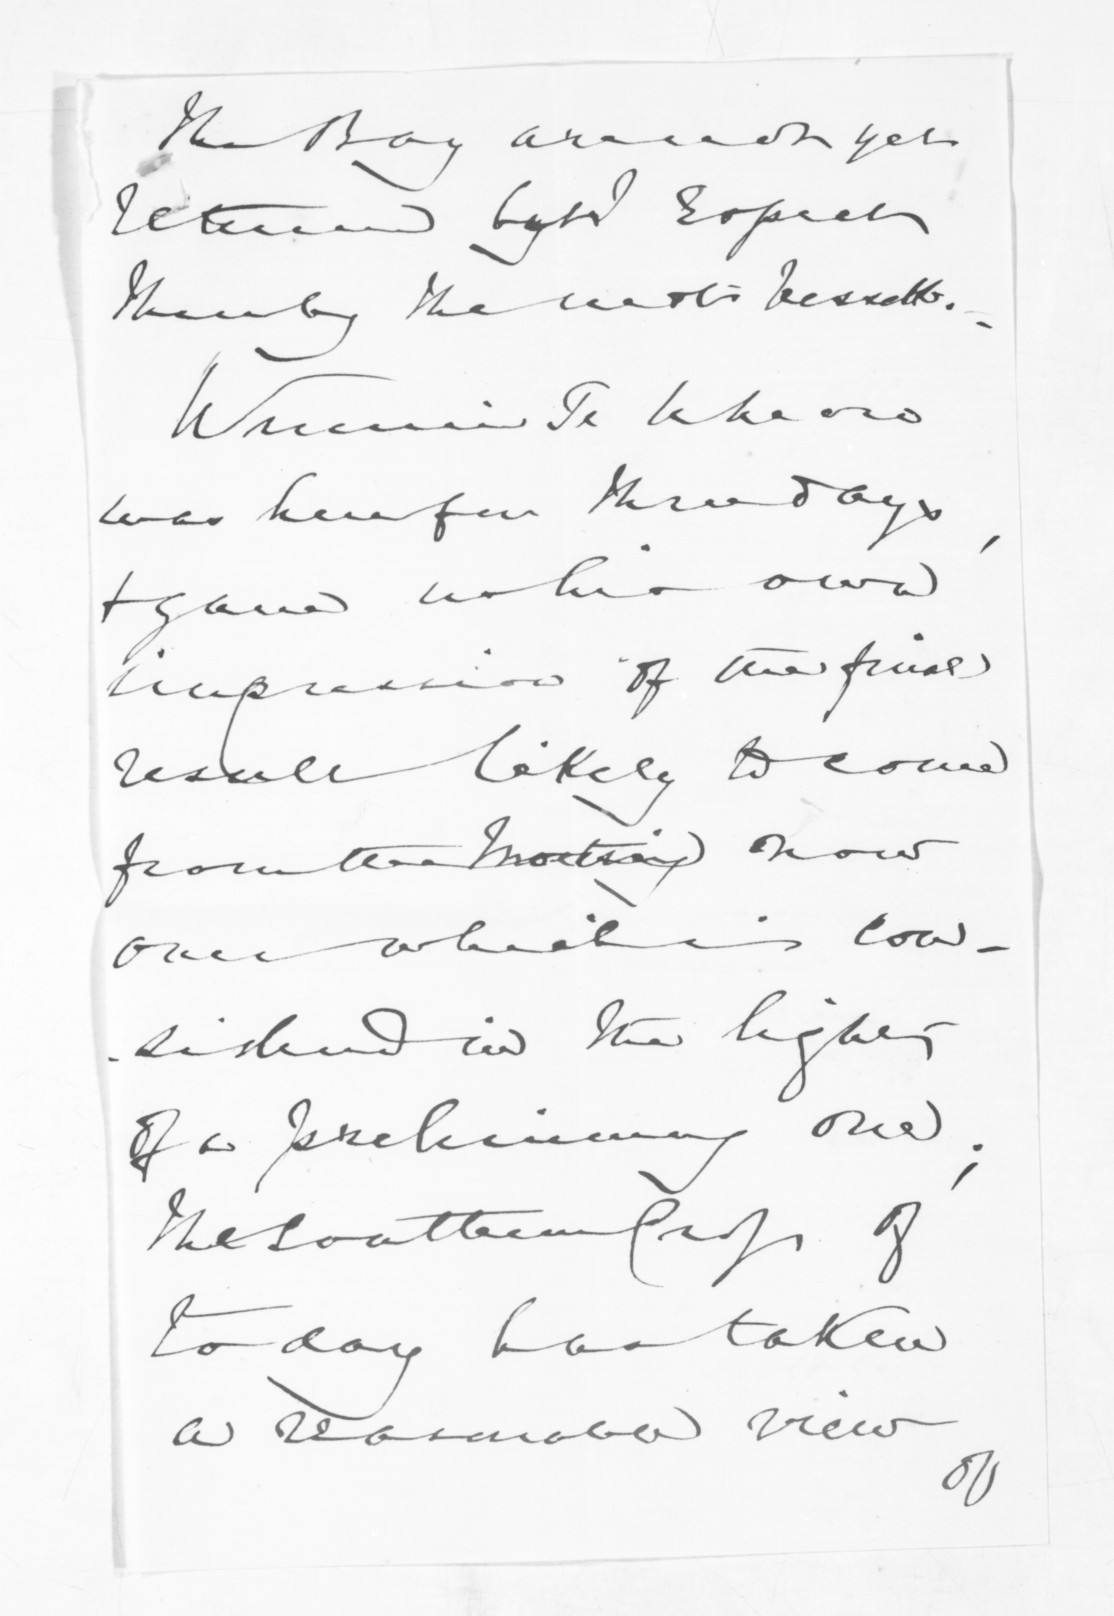 The Bay are not yet
returned but I Expect
them by the next vessel.-
Wiremu Te Wheoro
was here for three days,
& gave us his own
impression of the final
result likely to come
from the Meeting now
over which is con-
-sidered in the light
of a preliminary one;
The Southern Cross of
to day has taken
a reasonable view
of